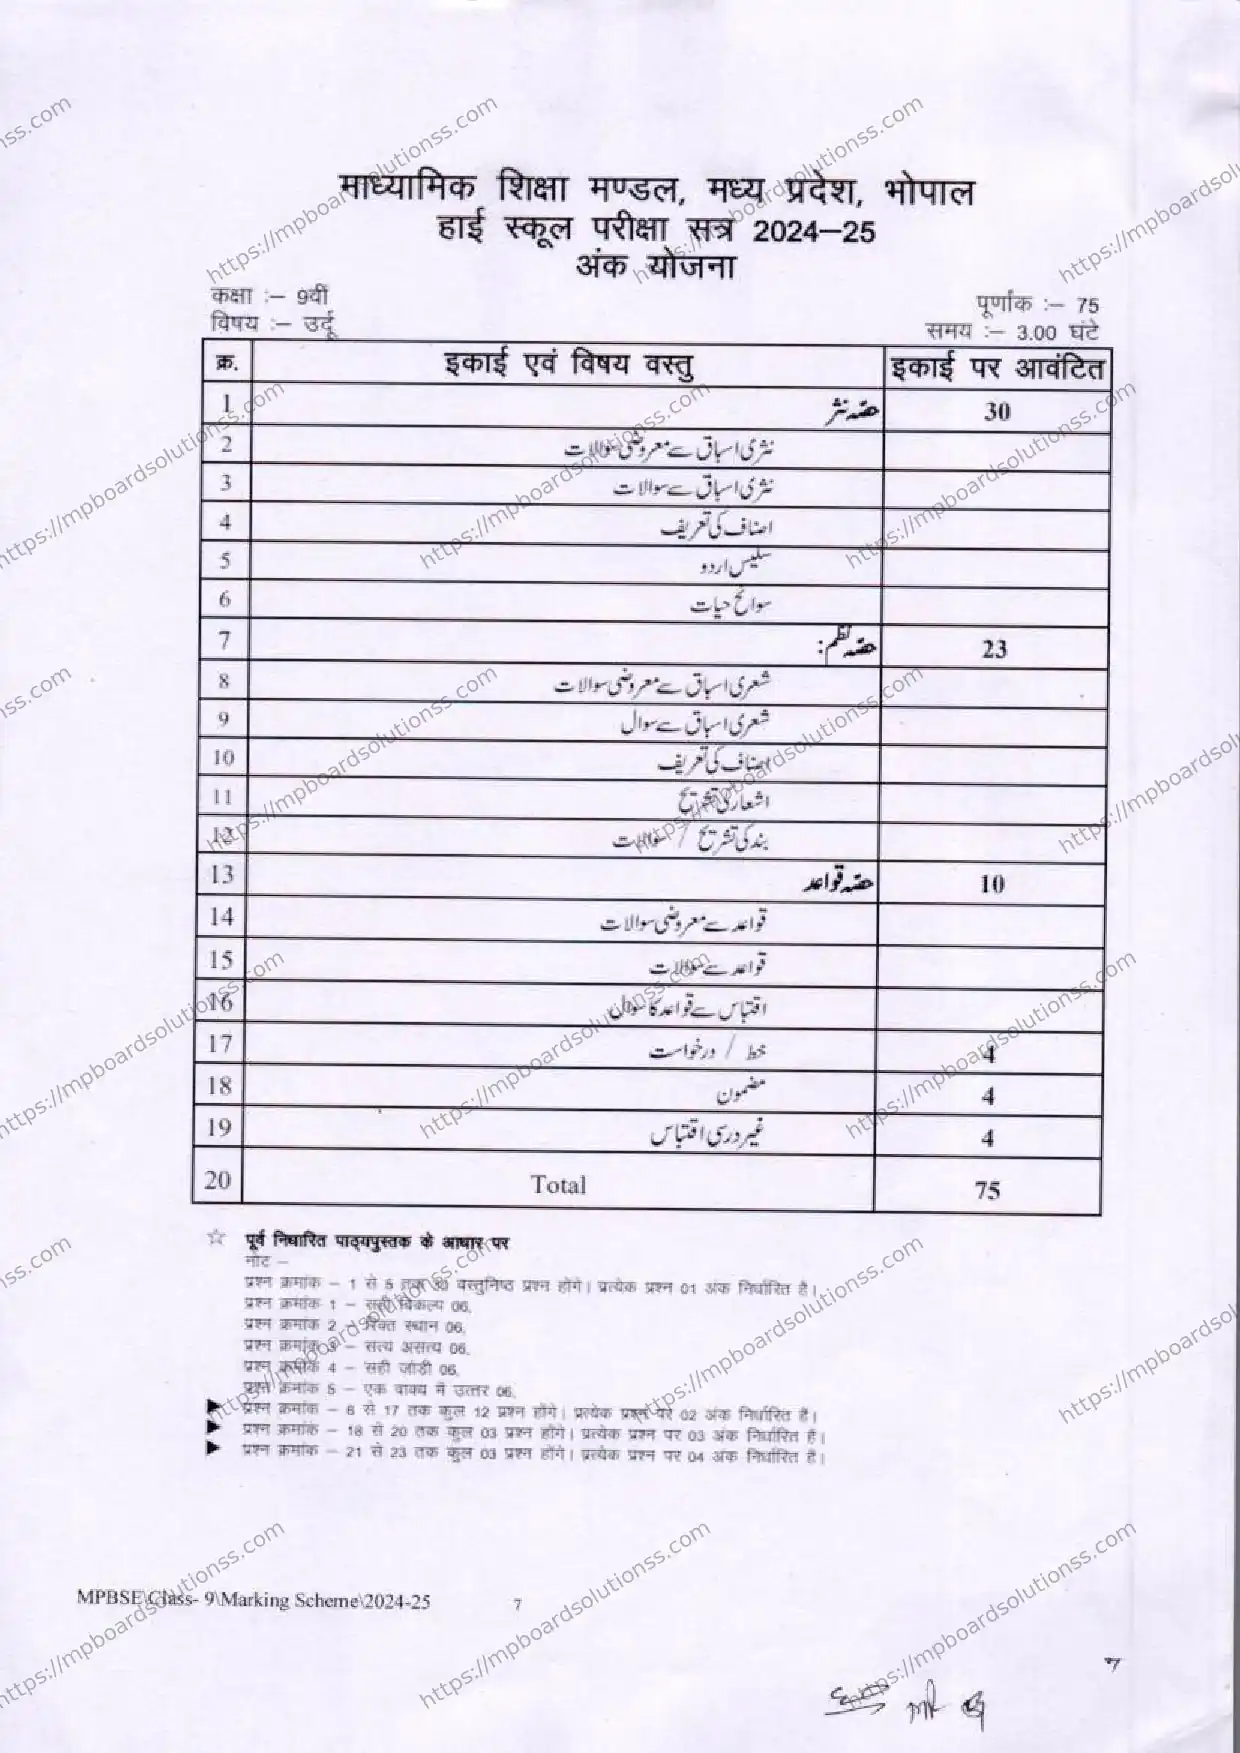 माध्यामिक शिक्षा मण्डल, मध्य प्रदेश, भोपाल
हाई स्कूल परीक्षा सत्र 2024–25
अंक योजना
कक्षा :– 9वीं
पूर्णांक :– 75
विषय :– उर्दू
समय :– 3.00 घंटे
क्र. इकाई एवं विषय वस्तु इकाई पर आवंटित
1 حصّہ نثر 30
2 نثری اسباق سے معروضی سوالات
3 نثری اسباق سے سوالات
4 اصناف کی تعریف
5 سلیس اردو
6 سوانح حیات
7 حصّہ نظم: 23
8 شعری اسباق سے معروضی سوالات
9 شعری اسباق سے سوال
10 اصناف کی تعریف
11 اشعار کی تشریح
12 بند کی تشریح / سوالات
13 حصّہ قواعد 10
14 قواعد سے معروضی سوالات
15 قواعد سے سوالات
16 اقتباس سے قواعد کا سوال
17 خط / درخواست 4
18 مضمون 4
19 غیر درسی اقتباس 4
20 Total 75
☆ पूर्व निर्धारित पाठ्यपुस्तक के आधार पर
नोट –
प्रश्न क्रमांक – 1 से 5 तक 30 वस्तुनिष्ठ प्रश्न होंगे। प्रत्येक प्रश्न 01 अंक निर्धारित है।
प्रश्न क्रमांक 1 – सही विकल्प 06,
प्रश्न क्रमांक 2 – रिक्त स्थान 06,
प्रश्न क्रमांक 3 – सत्य असत्य 06,
प्रश्न क्रमांक 4 – सही जोड़ी 06,
प्रश्न क्रमांक 5 – एक वाक्य में उत्तर 06,
प्रश्न क्रमांक – 6 से 17 तक कुल 12 प्रश्न होंगे। प्रत्येक प्रश्न पर 02 अंक निर्धारित है।
प्रश्न क्रमांक – 18 से 20 तक कुल 03 प्रश्न होंगे। प्रत्येक प्रश्न पर 03 अंक निर्धारित है।
प्रश्न क्रमांक – 21 से 23 तक कुल 03 प्रश्न होंगे। प्रत्येक प्रश्न पर 04 अंक निर्धारित है।
MPBSE\Class- 9\Marking Scheme\2024-25 7
https://mpboardsolutionss.com